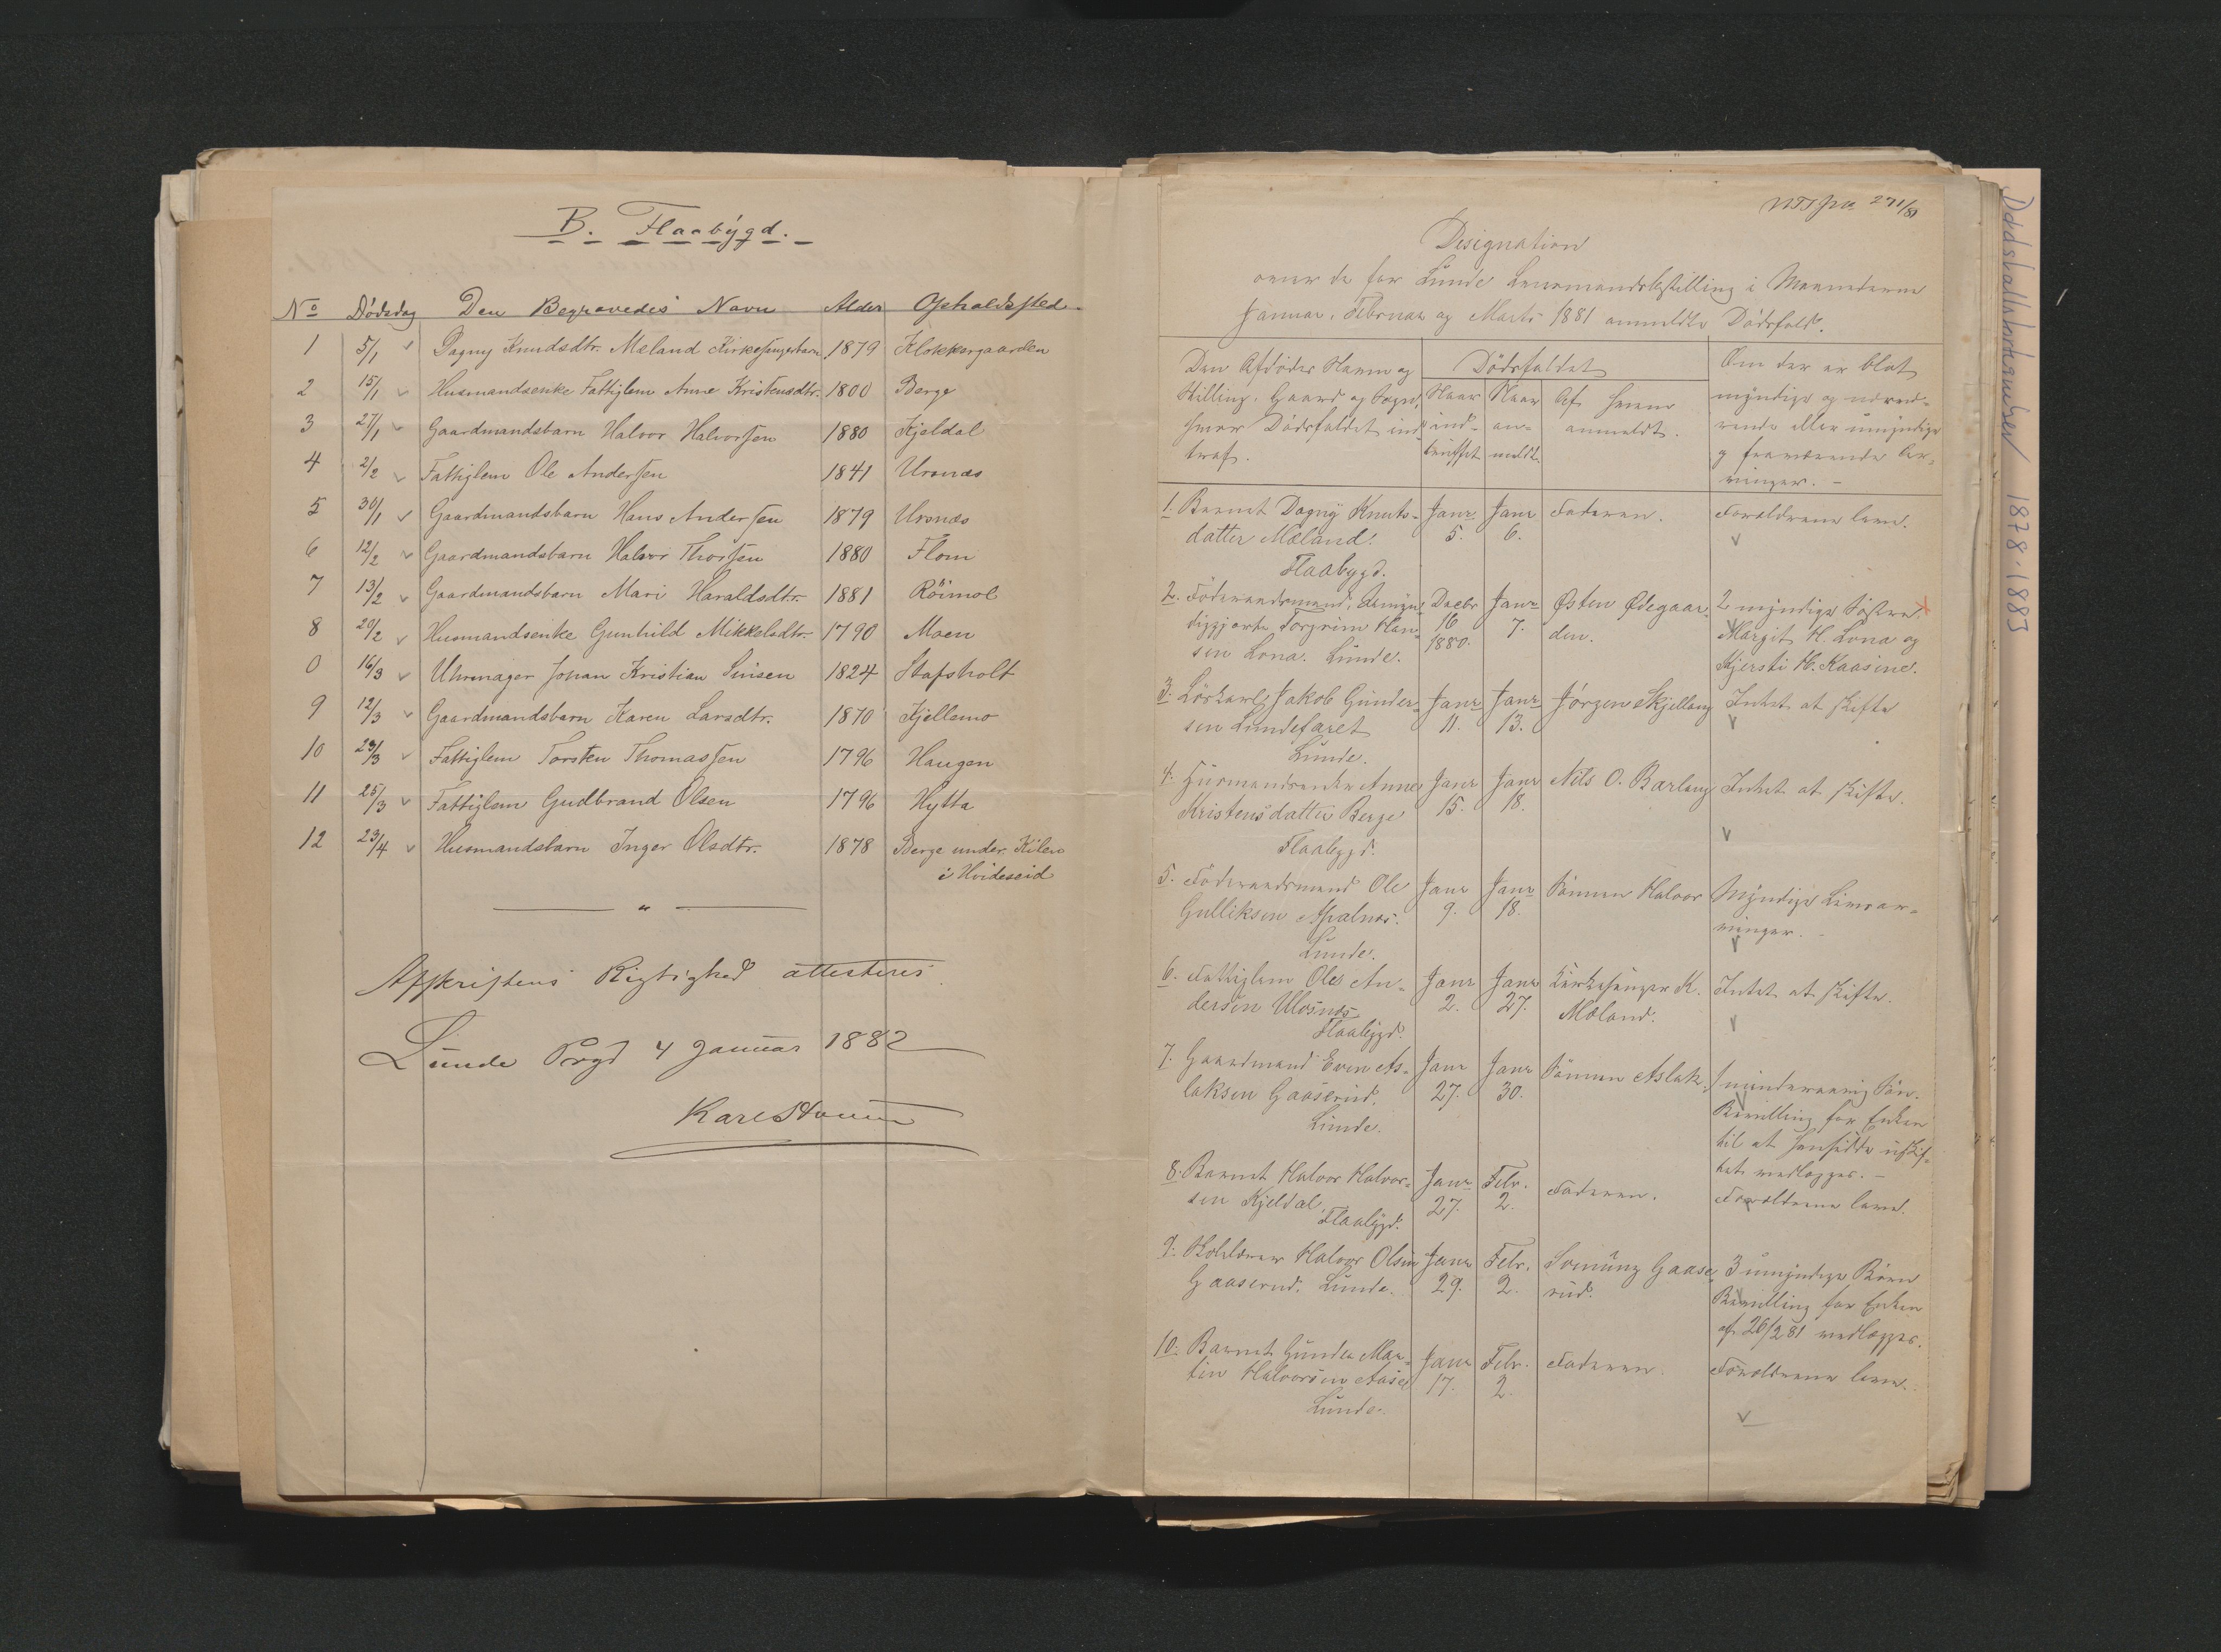 B. Flaabygd.
No Dödsdag Den Begravedes Navn Alder Opholdssted
1 5/1 Dagny Knudsdtr. Mæland Kirkesangerbarn 1879 Klokkergaarden
2 15/1 Husmandsenke Fattiglem Anne Kristensdtr. 1800 Berge
3 27/1 Gaardmandsbarn Halvor Halvorssen 1880 Kjeldal
4 2/2 Fattiglem Ole Anderssen 1841 Uvsnæs
5 30/1 Gaardmandsbarn Hans Anderssen 1879 Uvsnæs
6 12/2 Gaardmandsbarn Halvor Thorssen 1880 Flom
7 13/2 Gaardmandsbarn Mari Haraldsdtr. 1881 Röimol
8 20/2 Husmandsenke Gunhild Mikkelsdtr. 1790 Moen
0 16/3 Uhrmager Johan Kristian 1824 Stafsholt
9 12/3 Gaardmandsbarn Karen Larsdtr. 1870 Kjellemo
10 23/3 Fattiglem Torsten Thomassen 1796 Haugen
11 25/3 Fattiglem Gudbrand Olsen 1796 Hytta
12 23/4 Husmandsbarn Inger Olsdtr. 1878 Berge under Kilen
i Hvideseid
Afskriftens Rigtighed attesteres
Lunde Prgd 4 Januar 1882
271/81
Designation
over de for Lunde Lensmandsbestilling i Maanederne
Januar, Februar og Marts 1881 anmeldte Dödsfald.
Den Afdödes Navn og Dödsfaldet Om der er blot
Stilling, Gaard og Sogn, Naar Naar Af hvem myndige og nærvæ-
hvor Dödsfaldet ind- ind- an- anmeldt. rende eller umyndige
traf. truffet meldt og fraværende Ar-
vinger. -
1. Barnet Dagny Knuts- Janr Janr Faderen. Forældrene leve.
datter Mæland. 5. 6.
Flaabygd.
2. Föderaadsmand, umyn- Decbr Janr Østen Ødegaar- 2 myndige Söstre
diggjorte Torgrim Han- 16 7. den. Margit H. Lona og
sen Lona. Lunde. 1880. Kjersti H. Kaasine.
3. Löskarl Jakob Gunder- Janr Janr Jörgen Skjellaug Intet at skifte
sen Lundefaret 11. 13.
Lunde.
4. Husmandsenke Anne Janr Janr Nils O. Barlaug Intet at skifte.
Kristensdatter Berge 15. 18.
Flaabygd.
5. Föderaadsmand Ole Janr Janr Sönnen Halvor Myndige Livsar-
Gulliksen Apalnæs. 9. 18. vinger. -
Lunde.
6. Fattiglem Ole An- Janr Janr Kirkesanger K. Intet at skifte.
dersen 2. 27. Mæland.
Flaabygd.
7. Gaardmand Even As- Janr Janr Sönnen Aslak. 1 mindreaarig Sön.
laksen Gaaserud. 27. 30. Bevilling for Enken
Lunde. til at hensidde uskif-
tet vedlægges. -
8. Barnet Halvor Halvor- Janr Febr. Faderen. Forældrene leve.
sen Kjeldal 27. 2.
Flaabygd.
9. Halvor Olsen Janr Febr. Sveinung Gaase- 3 umyndige Börn
Gaaserud. Lunde. 29. 2. rud. Bevilling for Enken
af 26/2 81 vedlægges.
10. Barnet Gunder Mar- Janr Febr. Faderen. Forældrene leve.
tin Halvorsen Aase 17. 2.
Lunde.
Dødsfallsforteignelser 1878-1883